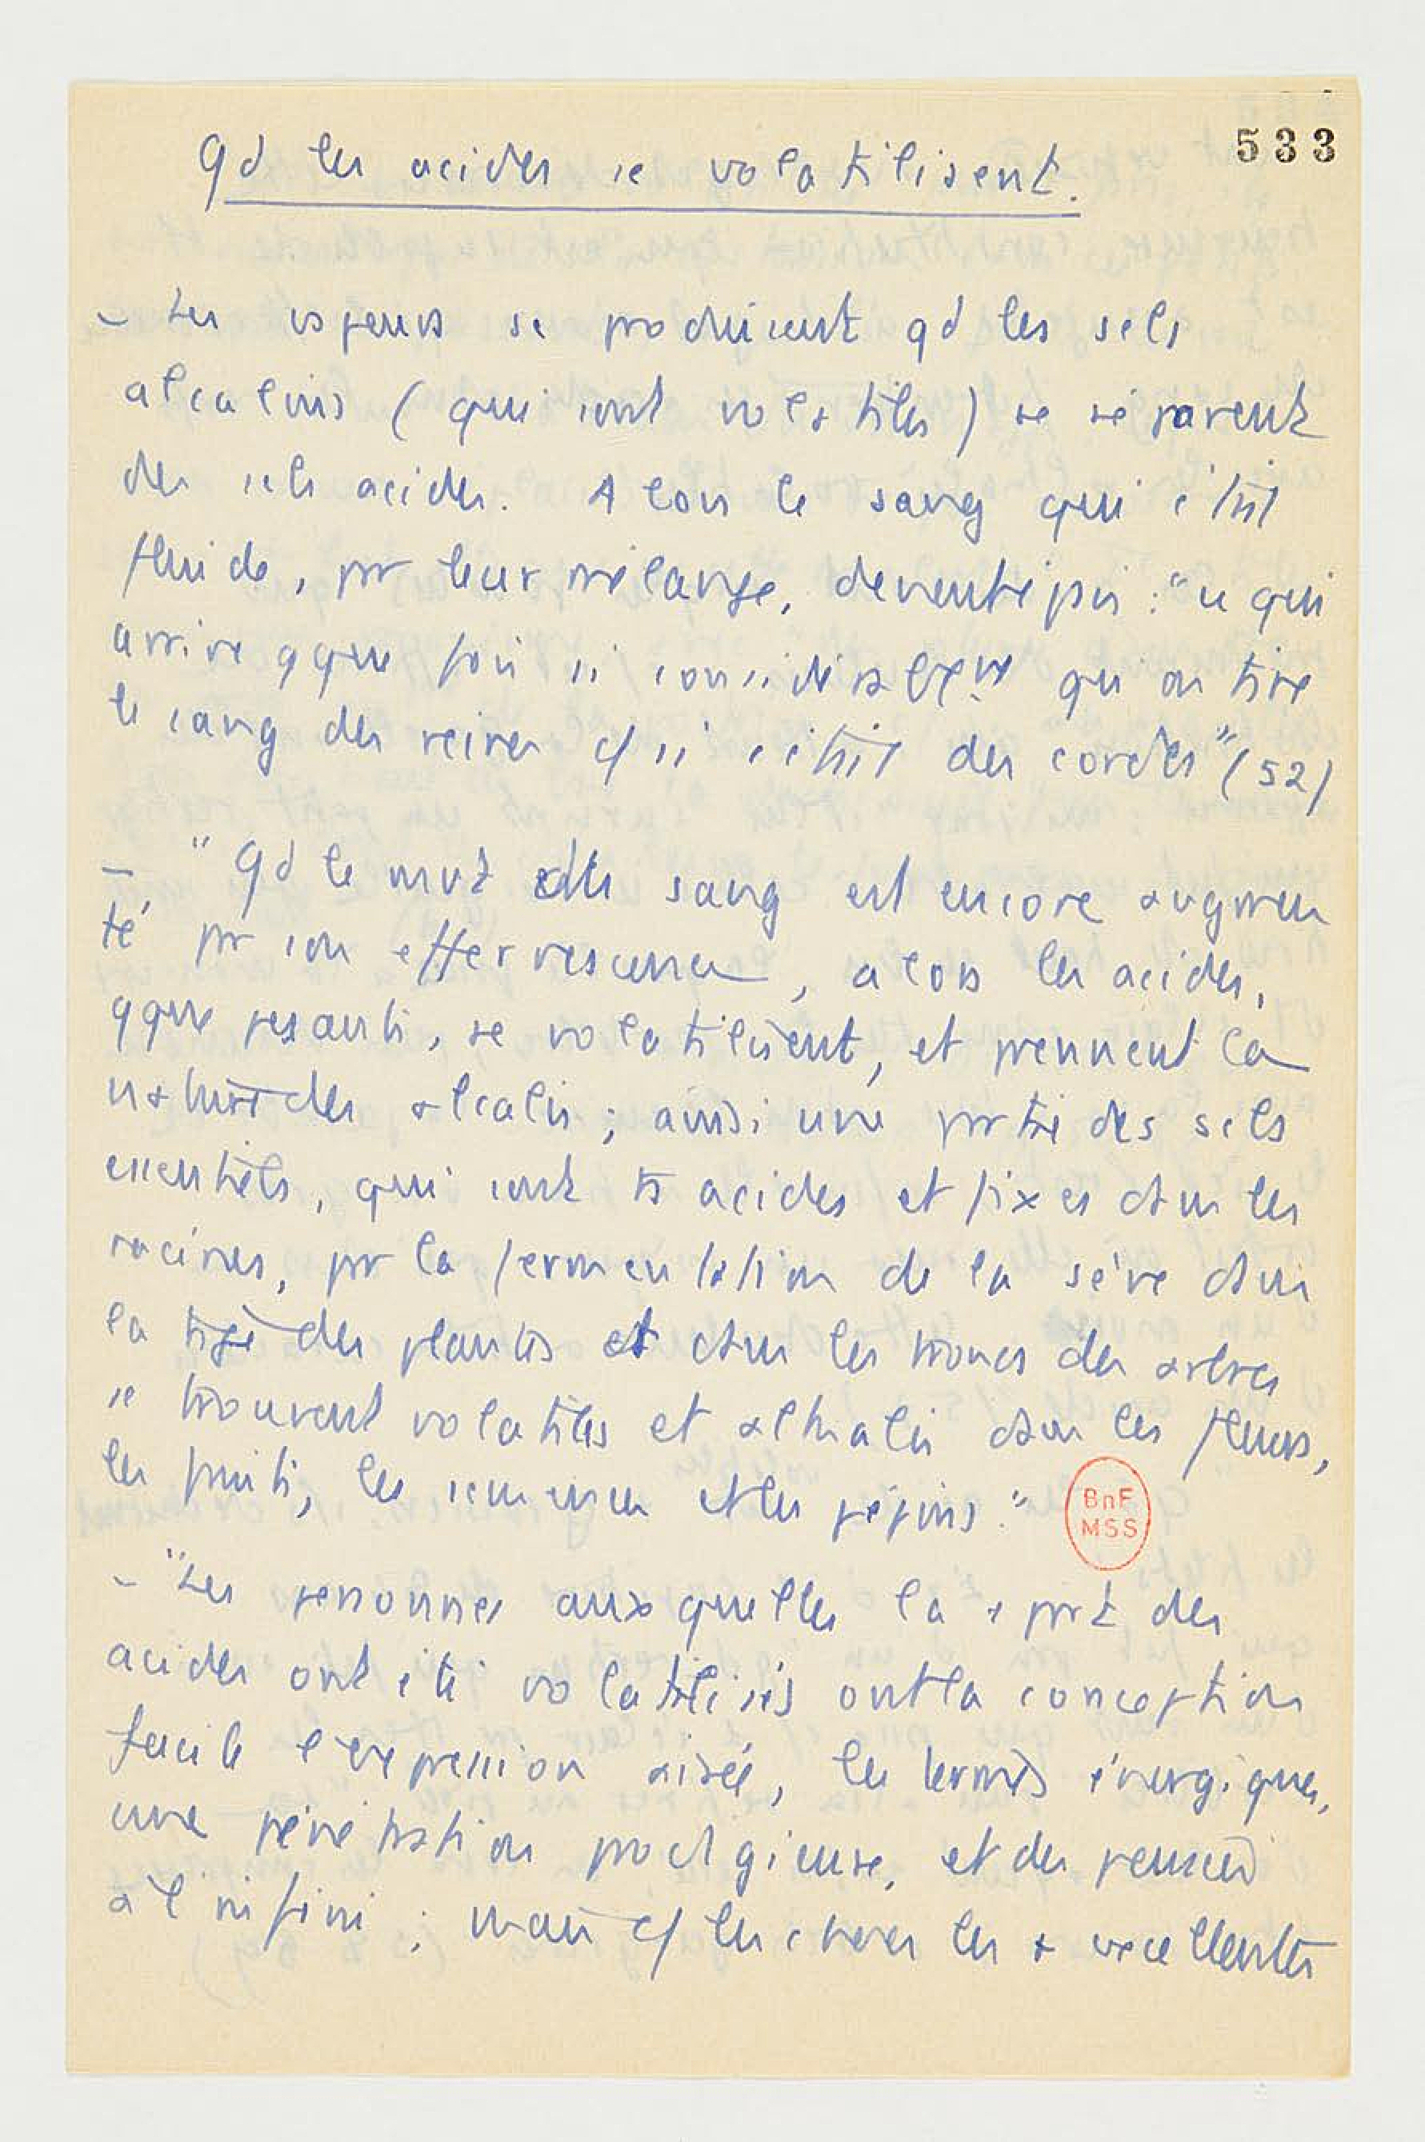 533
Qd les acides se volatilisent.
– Les vapeurs se produisent qd les sels
alcalins (qui sont volatiles) se séparent
des sels acides. Alors le sang qui était
fluide, pr leur mélange, devient épais : "ce qui
arrive qque fois si considérablemt qu'on tire
le sang des veines c/ si c'était des cordes" (52)
– "Qd le mvt du sang est encore augmen
té pr son effervescence, alors les acides,
qque pesants, se volatilisent, et prennent la
nature des alcalis ; ainsi une partie des sels
essentiels, qui sont ts acides et fixes dans les
racines, pr la fermentation de la sève dans
la tige des plantes et dans les troncs des arbres
se trouvent volatiles et alkalis dans les fleurs,
les fruits, les semences et les pépins."
BnF
MSS
– "Les personnes auxquelles la + part des
acides ont été volatilisés ont la conception
facile l'expression aisée, les termes énergiques,
une pénétration prodigieuse, et des pensées
à l'infini ; mais c/ les choses les + excellentes